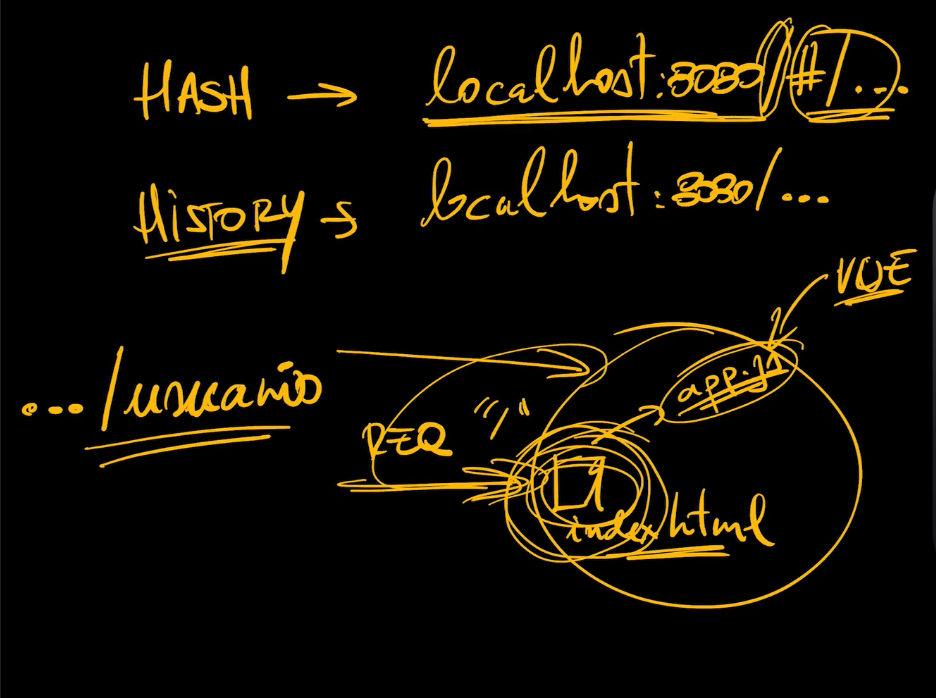 HASH → localhost:8080/#/...
HISTORY → localhost:8080/...
VUE
app.js
.../usuario
REQ "/"
index.html